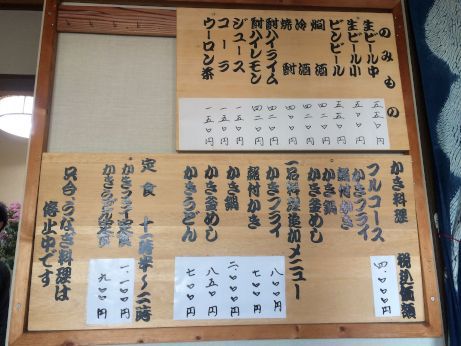 のみもの
生ビール中 五五〇円
生ビール小
ビンビール 五五〇円
燗酒
冷酒
焼酎
酎ハイライム
酎ハイレモン
ジュース
コーラ
ウーロン茶 一五〇円
かき料理 税込価額
フルコース 四、〇〇〇円
かきフライ
殻付かき
かき鍋
かき釜めし
一品料理追加メニュー
かきフライ 八〇〇円
殻付かき 七〇〇円
かき鍋 二、〇〇〇円
かき釜めし 八五〇円
かきうどん 七〇〇円
定食 十一時半〜二時
かきフライ定食 一、一〇〇円
かきうどん定食 九〇〇円
只今、うなぎ料理は
停止中です